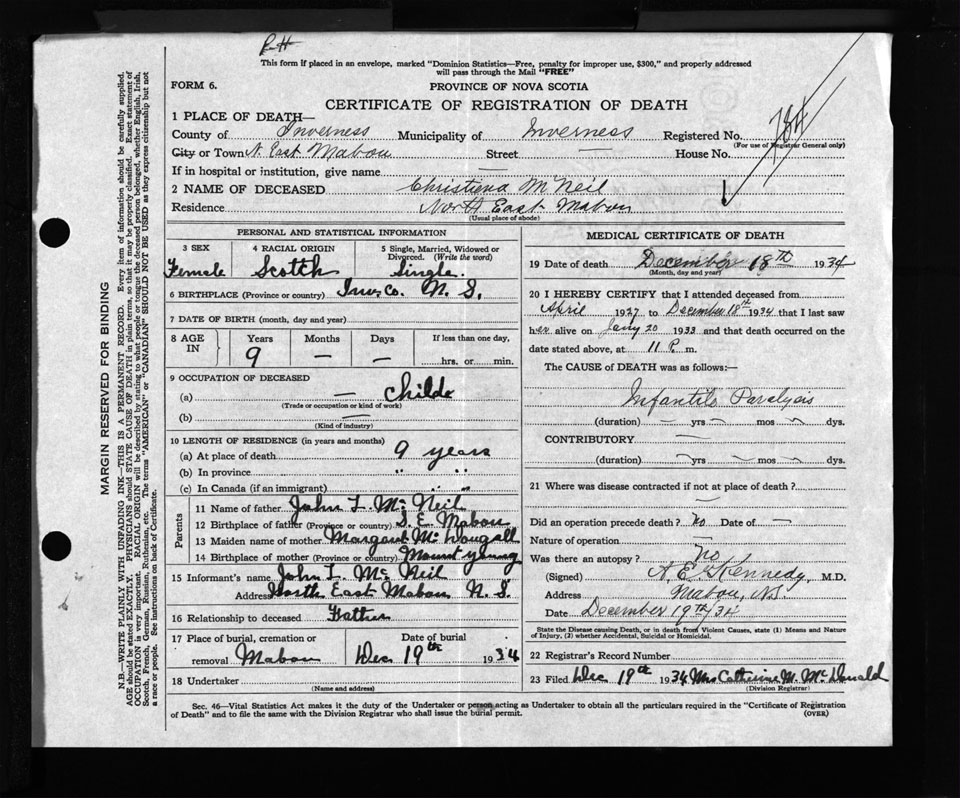 This form if placed in an envelope, marked "Dominion Statistics—Free, penalty for improper use, $300," and properly addressed
will pass through the Mail "FREE"
FORM 6. PROVINCE OF NOVA SCOTIA
CERTIFICATE OF REGISTRATION OF DEATH
1 PLACE OF DEATH—
County of Inverness Municipality of Inverness Registered No. 784
(For use of Registrar General only)
City or Town N. East Mabou Street — House No.
If in hospital or institution, give name —
2 NAME OF DECEASED Christiena McNeil
Residence North East Mabou
(Usual place of abode)
PERSONAL AND STATISTICAL INFORMATION
3 SEX 4 RACIAL ORIGIN 5 Single, Married, Widowed or
Divorced. (Write the word)
Female Scotch Single.
6 BIRTHPLACE (Province or country) Inv. Co. N. S.
7 DATE OF BIRTH (month, day and year)
8 AGE IN Years Months Days If less than one day,
9 — — hrs. or min.
9 OCCUPATION OF DECEASED
(a) — Childe
(Trade or occupation or kind of work)
(b) —
(Kind of industry)
10 LENGTH OF RESIDENCE (in years and months)
(a) At place of death 9 years
(b) In province " "
(c) In Canada (if an immigrant) " "
Parents
11 Name of father John L. Mc Neil
12 Birthplace of father (Province or country) S. E. Mabou
13 Maiden name of mother Margaret Mc Dougall
14 Birthplace of mother (Province or country) Mount young
15 Informant's name John L. Mc Neil
Address North East Mabou N. S.
16 Relationship to deceased Father
17 Place of burial, cremation or Date of burial
removal Mabou Dec 19th 1934
18 Undertaker
(Name and address)
MEDICAL CERTIFICATE OF DEATH
19 Date of death December 18th 1934
(Month, day and year)
20 I HEREBY CERTIFY that I attended deceased from
April 1927 to December 18th 1934 that I last saw
her alive on Jany 20 1933 and that death occurred on the
date stated above, at 11 P. m.
The CAUSE of DEATH was as follows:—
Infantile Paralysis
(duration) — yrs — mos — dys.
CONTRIBUTORY —
(duration) — yrs — mos — dys.
21 Where was disease contracted if not at place of death?
—
Did an operation precede death? No Date of —
Nature of operation —
Was there an autopsy? No
(Signed) A. E. Kennedy, M.D.
Address Mabou, NS
Date December 19th/34
State the Disease causing Death, or in Death from Violent Causes, state (1) Means and Nature
of Injury, (2) whether Accidental, Suicidal or Homicidal.
22 Registrar's Record Number
23 Filed Dec 19th 1934 Mrs Catherine M. McDonald
(Division Registrar)
Sec. 46—Vital Statistics Act makes it the duty of the Undertaker or person acting as Undertaker to obtain all the particulars required in the "Certificate of Registration
of Death" and to file the same with the Division Registrar who shall issue the burial permit. (OVER)
MARGIN RESERVED FOR BINDING
N.B.—WRITE PLAINLY WITH UNFADING INK—THIS IS A PERMANENT RECORD. Every item of information should be carefully supplied.
AGE should be stated EXACTLY. PHYSICIANS should STATE CAUSE OF DEATH in plain terms, so that it may be properly classified. Exact statement of
OCCUPATION is very important. RACIAL ORIGIN will be described by stating to what people or tongue the deceased person belonged, whether English, Irish,
Scotch, French, German, Russian, Ruthenian, etc. The terms "AMERICAN" or "CANADIAN" SHOULD NOT BE USED as they express citizenship but not
a race or people. See instructions on back of Certificate.